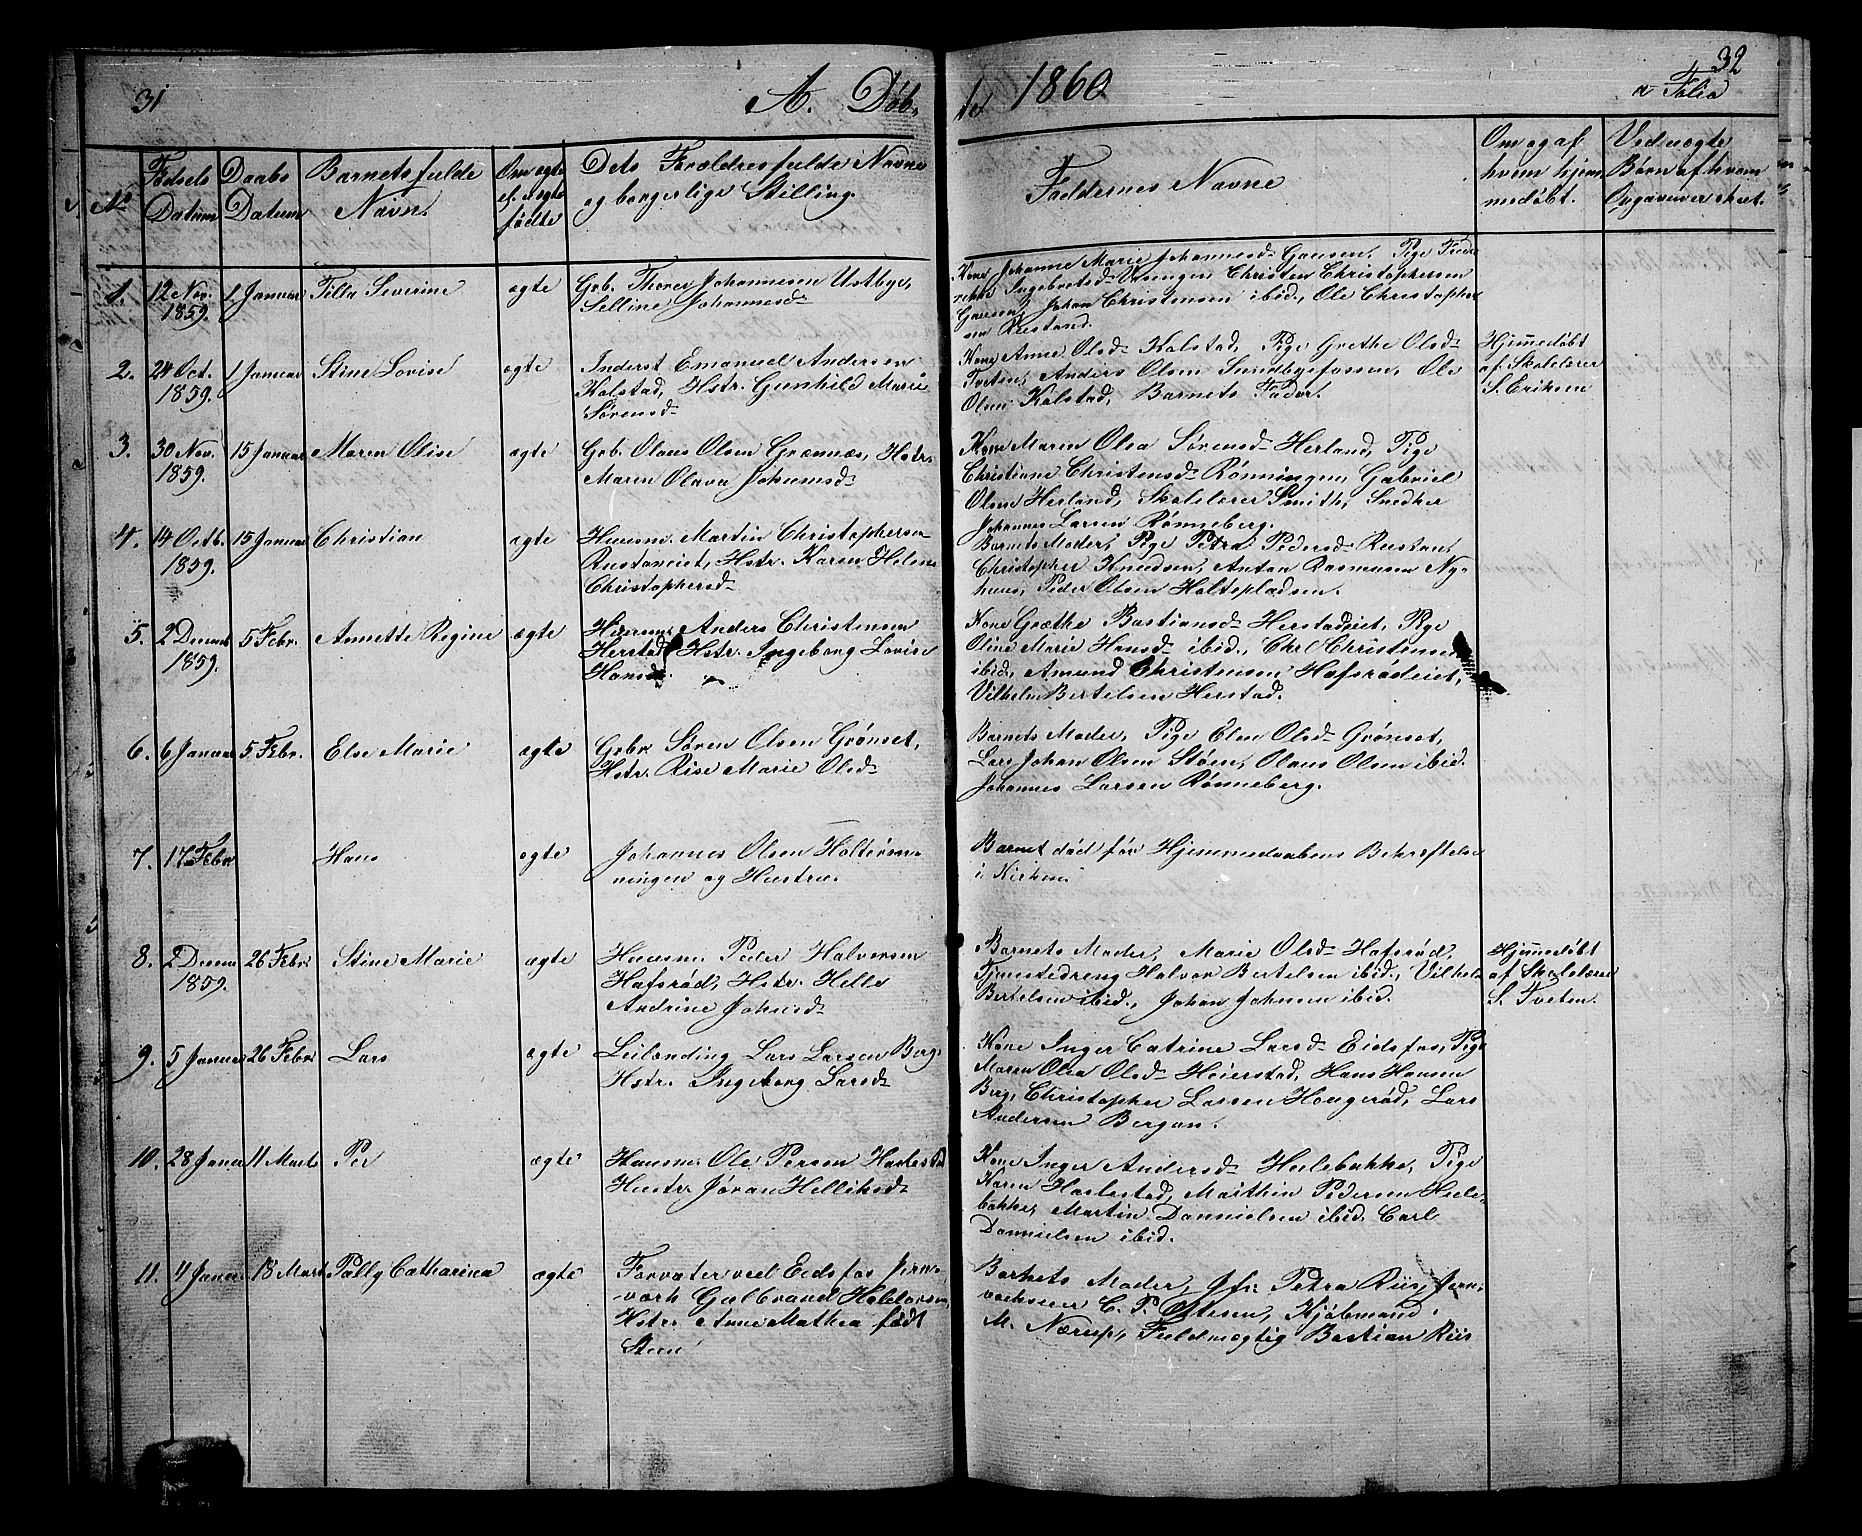 31
A. Døb-
te 1860
32
a Folio
No
Fødsels Datum
Daabs Datum
Barnets fulde Navn.
Om ægte el. uægte fødte
Dets Forældres fulde Navne og borgerlige Stilling.
Faddernes Navne
Om og af hvem hjemmedøbt.
Ved uægte Børn af hvem Opgaven er skeet.
1. 12 Nov. 1859. 1 Januar Tilla Severine ægte
Grb. Thorer Johannesen Ustbye,
Selline Johannesd-
Kone Johanne Marie Johannesd- Gausen, Pige Fride
rikke Ingebretsd- Christen Christophersen
Gausen, Johan Christensen ibid., Ole Christopher
sen Rustand.
2. 24 Oct. 1859. 1 Januar Stine Lovise ægte
Inderst Emanuel Andersen
Kolstad, Hstr. Gunhild Marie
Sørensd-
Kone Anne Olsd- Kolstad, Pige Grethe Olsd-
Tveten, Anders Olsen Sundbyefossen, Ole
Olsen Kolstad, Barnets Fader.
Hjemmedøbt
af Skolelærer
S. Eriksen
3. 30 Nov. 1859. 15 Januar Maren Olise ægte
Grb. Olaus Olsen Grønnæs, Hstr.
Maren Olava Johannsd-
Kone Maren Olea Sørensd- Herland, Pige
Christiane Christensd- Rønningen, Gabriel
Olsen Herland, Skolelærer Smith, Snedker
Johannes Larsen Rønneberg.
4. 14 Octb. 1859. 15 Januar Christian ægte
Huusm. Martin Christophersen
Rustaneiet, Hstr. Karen Helene
Christophersd-
Barnets Moder, Pige Petra Pedersd- Rustan,
Christopher Knudsen, Anton Rasmusen Ny-
huus, Peder Olsen Holtepladsen.
5. 2 Decemb 1859. 5 Febr. Annette Regine ægte
Huusm. Anders Christensen
Herstad, Hstr. Ingeborg Lovise
Hansd-
Kone Grethe Bastiansd- Herstadeiet, Pige
Oline Marie Hansd- ibid., Chr. Christensen
ibid., Amund Christensen Hafsrødeiet,
Vilhelm Bertelsen Herstad.
6. 6 Januar 5 Febr. Else Marie ægte
Grbr Søren Olsen Grønset,
Hstr. Rise Marie Olsd-
Barnets Moder, Pige Elen Olsd- Grønset,
Lars Johan Olsen Støen, Olaus Olsen ibid.
Johannes Larsen Rønneberg.
7. 17 Febr Hans ægte
Johannes Olsen Holterøn-
ningen og Hustru.
Barnet død før Hjemmedaabens Bekræftelse
i Kirken.
8. 2 Decem 1859. 26 Febr Stine Marie ægte
Huusm. Peder Halvorsen
Hafsrød, Hstr. Helle
Andrine Johnsd-
Barnets Moder, Marie Olsd- Hafsrød,
Tjenestedreng Halvor Bertelsen ibid., Vilhelm
Bertelsen ibid., Johan Johnsen ibid.
Hjemmedøbt
af Skolelærer
S. Tveten.
9. 5 Januar 26 Febr Lars ægte
Leilænding Lars Larsen Berg,
Hstr. Ingeborg Larsd-
Kone Inger Catrine Larsd- Eidsfos, Pige
Maren Olea Olsd- Høierstad, Hans Hansen
Berg, Christopher Larsen Haugerød, Lars
Andersen Bergan.
10. 28 Januar 11 Marts Per ægte
Huusm. Ole Persen Haslestad
Hustr. Jøran Helliksd-
Kone Inger Andersd- Hulebakke, Pige
Karen Haslestad, Mathin Pedersen Hule-
bakke, Martin Dannielsen ibid. Carl
Dannielsen ibid.
11. 4 Januar 18 Marts Pally Catharina ægte
Forvalter ved Eidsfos Jern-
værk Gulbrand Haldorsen,
Hstr. Anne Mathea født
Steen
Barnets Moder, Jfr. Petra Riis, Jern-
værkseier C. P. Olsen, Kjøbmand
M. Nærup, Fuldmægtig Bastian Riis